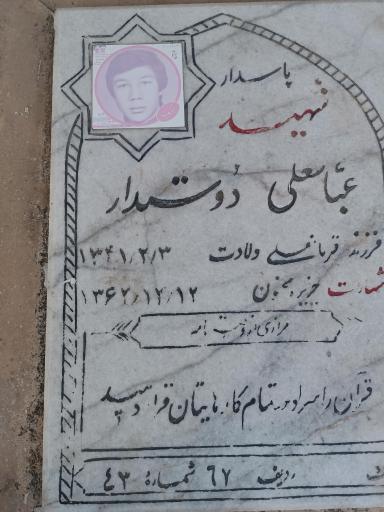 پاسدار
شهید
عباسعلی دوستدار
فرزند قربانعلی ولادت ۱۳۴۱/۲/۳
شهادت جزیره مجنون ۱۳۶۲/۱۲/۱۲
فرازی از وصیت نامه
قرآن را سرلوحه تمام کارهایتان قرار دهید
ردیف ۶۷ شمارهٔ ۴۳